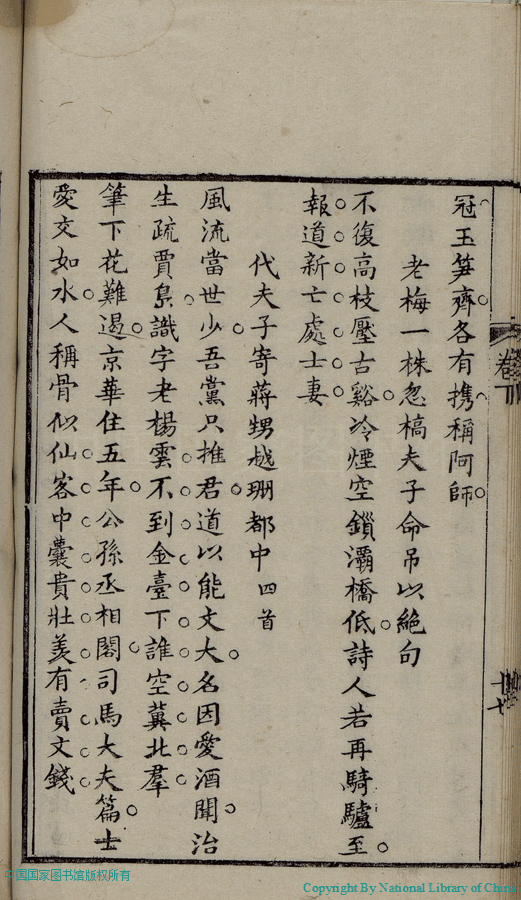 冠玉筍齊各有携稱阿師
老梅一株忽槁夫子命吊以絕句
不復高枝壓古谿冷煙空鎖灞橋低詩人若再騎驢至
報道新亡處士妻
代夫子寄蔣甥越珊都中四首
風流當世少吾黨只推君道以能文大名因愛酒聞治
生疏賈島識字老楊雲不到金臺下誰空冀北羣
筆下花難遏京華住五年公孫丞相閣司馬大夫篇士
愛交如水人稱骨似仙客中囊貴壯羡有賣文錢
卷下
十七
中国国家图书馆版权所有
Copyright By National Library of China